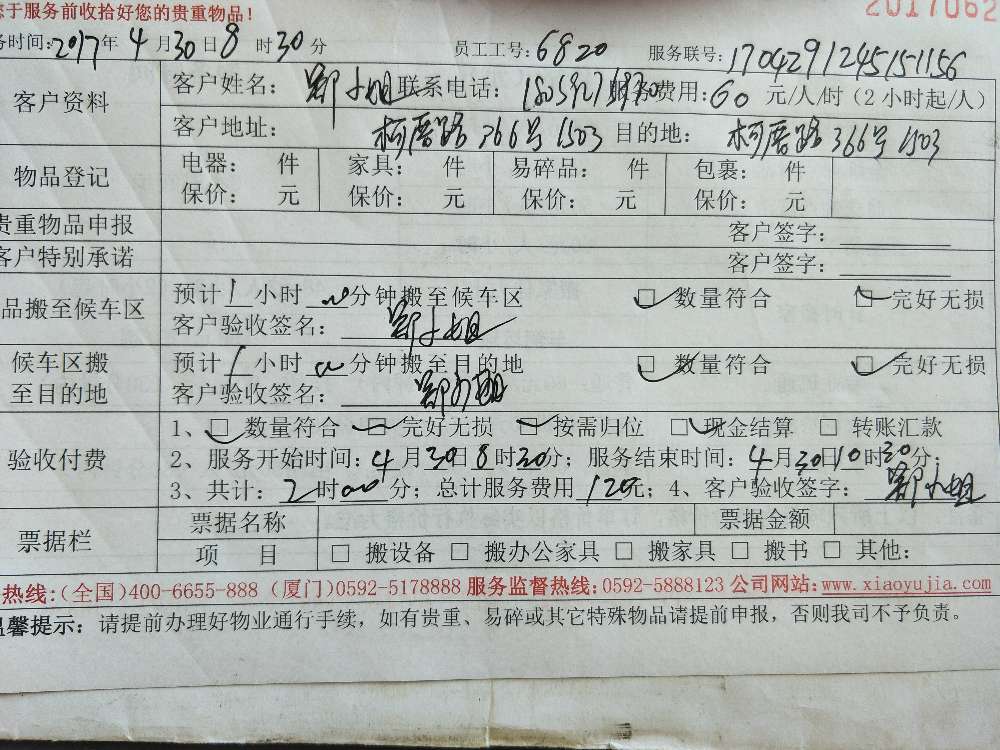 您于服务前收拾好您的贵重物品！
2017062
务时间：2017年4月30日8时30分 员工工号：6820 服务联号：17042912451551156
客户资料 客户姓名：郭小姐 联系电话： 服务费用：60元/人/时（2小时起/人）
客户地址：柯厝路366号1503 目的地：柯厝路366号1503
物品登记 电器： 件 家具： 件 易碎品： 件 包裹： 件
保价： 元 保价： 元 保价： 元 保价： 元
贵重物品申报 客户签字：
客户特别承诺 客户签字：
品搬至候车区 预计1小时00分钟搬至候车区 数量符合 完好无损
客户验收签名：郭小姐
候车区搬至目的地 预计1小时00分钟搬至目的地 数量符合 完好无损
客户验收签名：郭小姐
验收付费 1、数量符合 完好无损 按需归位 现金结算 转账汇款
2、服务开始时间：4月30日8时30分；服务结束时间：4月30日10时30分；
3、共计：2时00分；总计服务费用120元；4、客户验收签字：郭小姐
票据栏 票据名称 票据金额
项 目 搬设备 搬办公家具 搬家具 搬书 其他：
热线：(全国)400-6655-888 (厦门)0592-5178888 服务监督热线：0592-5888123 公司网站：www.xiaoyujia.com
温馨提示：请提前办理好物业通行手续，如有贵重、易碎或其它特殊物品请提前申报，否则我司不予负责。